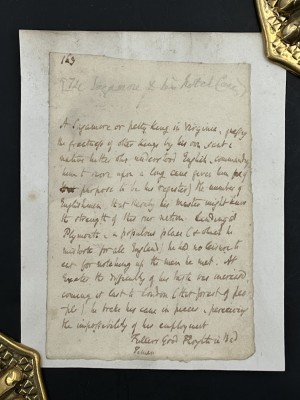 163
The Sagamore & his Notch Cane
A Sagamore or petty King in Virginia, guessing
the greatness of other Kings by his own, sent a
native hither who understood English, commanding
him to score upon a long cane given him (of
purpose to be his register) the number of
Englishmen, that thereby his master might know
the strength of this our nation. Landing at
Plymouth, a populous place (& which he
mistook for all England), he had no leisure to
eat for notching up the men he met. At
Exeter the difficulty of his task was increased,
coming at last to London (that forest of peo-
ple) he brake his cane in pieces, perceiving
the impossibility of his employment
Fullers Good Thoughts in Bad
Times